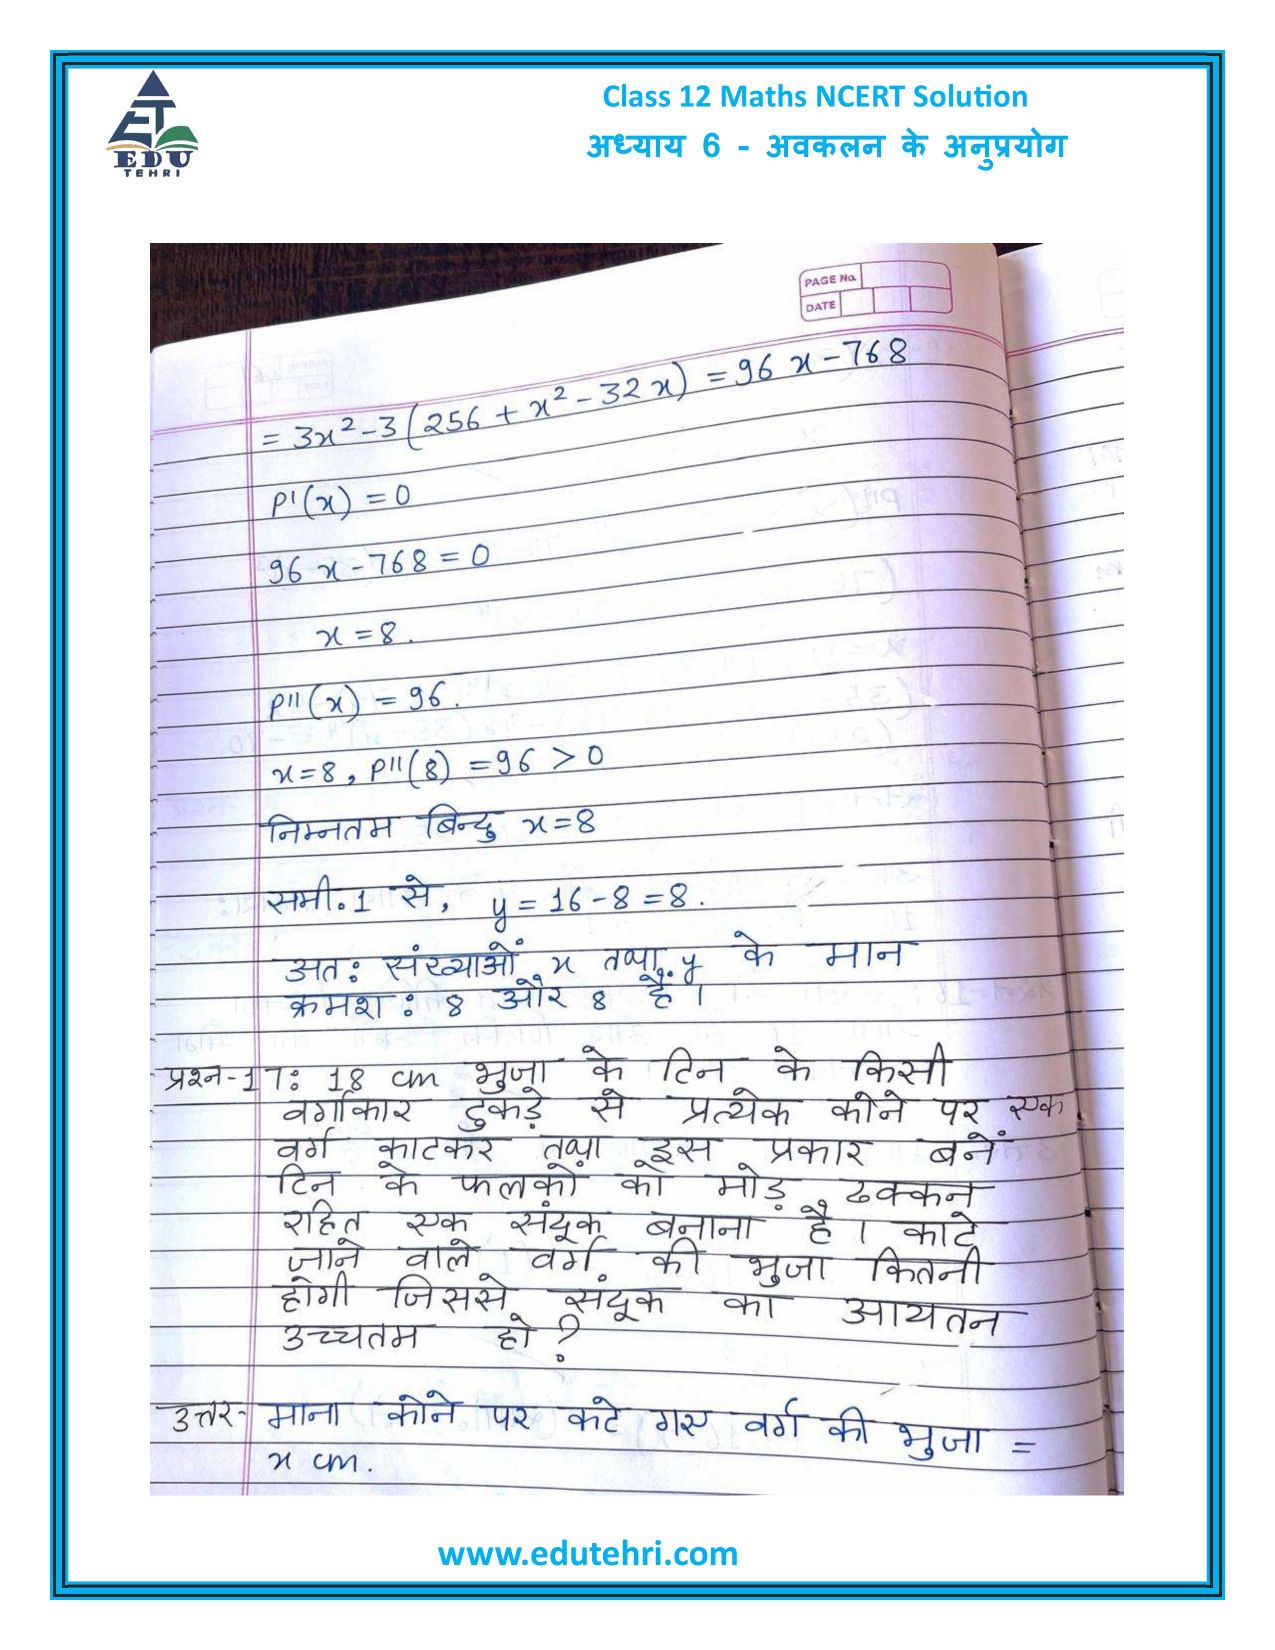 ET
EDU
TEHRI
Class 12 Maths NCERT Solution
अध्याय 6 - अवकलन के अनुप्रयोग
PAGE No.
DATE
= 3x² - 3(256 + x² - 32x) = 96x - 768
P'(x) = 0
96x - 768 = 0
x = 8.
P''(x) = 96.
x = 8, P''(8) = 96 > 0
निम्नतम बिन्दु x = 8
समी.1 से, y = 16 - 8 = 8.
अत: संख्याओं x तथा y के मान
क्रमश: 8 और 8 है।
प्रश्न-17: 18 cm भुजा के टिन के किसी
वर्गाकार टुकड़े से प्रत्येक कोने पर एक
वर्ग काटकर तथा इस प्रकार बनें
टिन के फलकों को मोड़ ढक्कन
रहित एक संदूक बनाना है। काटे
जाने वाले वर्ग की भुजा कितनी
होगी जिससे संदूक का आयतन
उच्चतम हो?
उत्तर- माना कोने पर कटे गए वर्ग की भुजा =
x cm.
www.edutehri.com